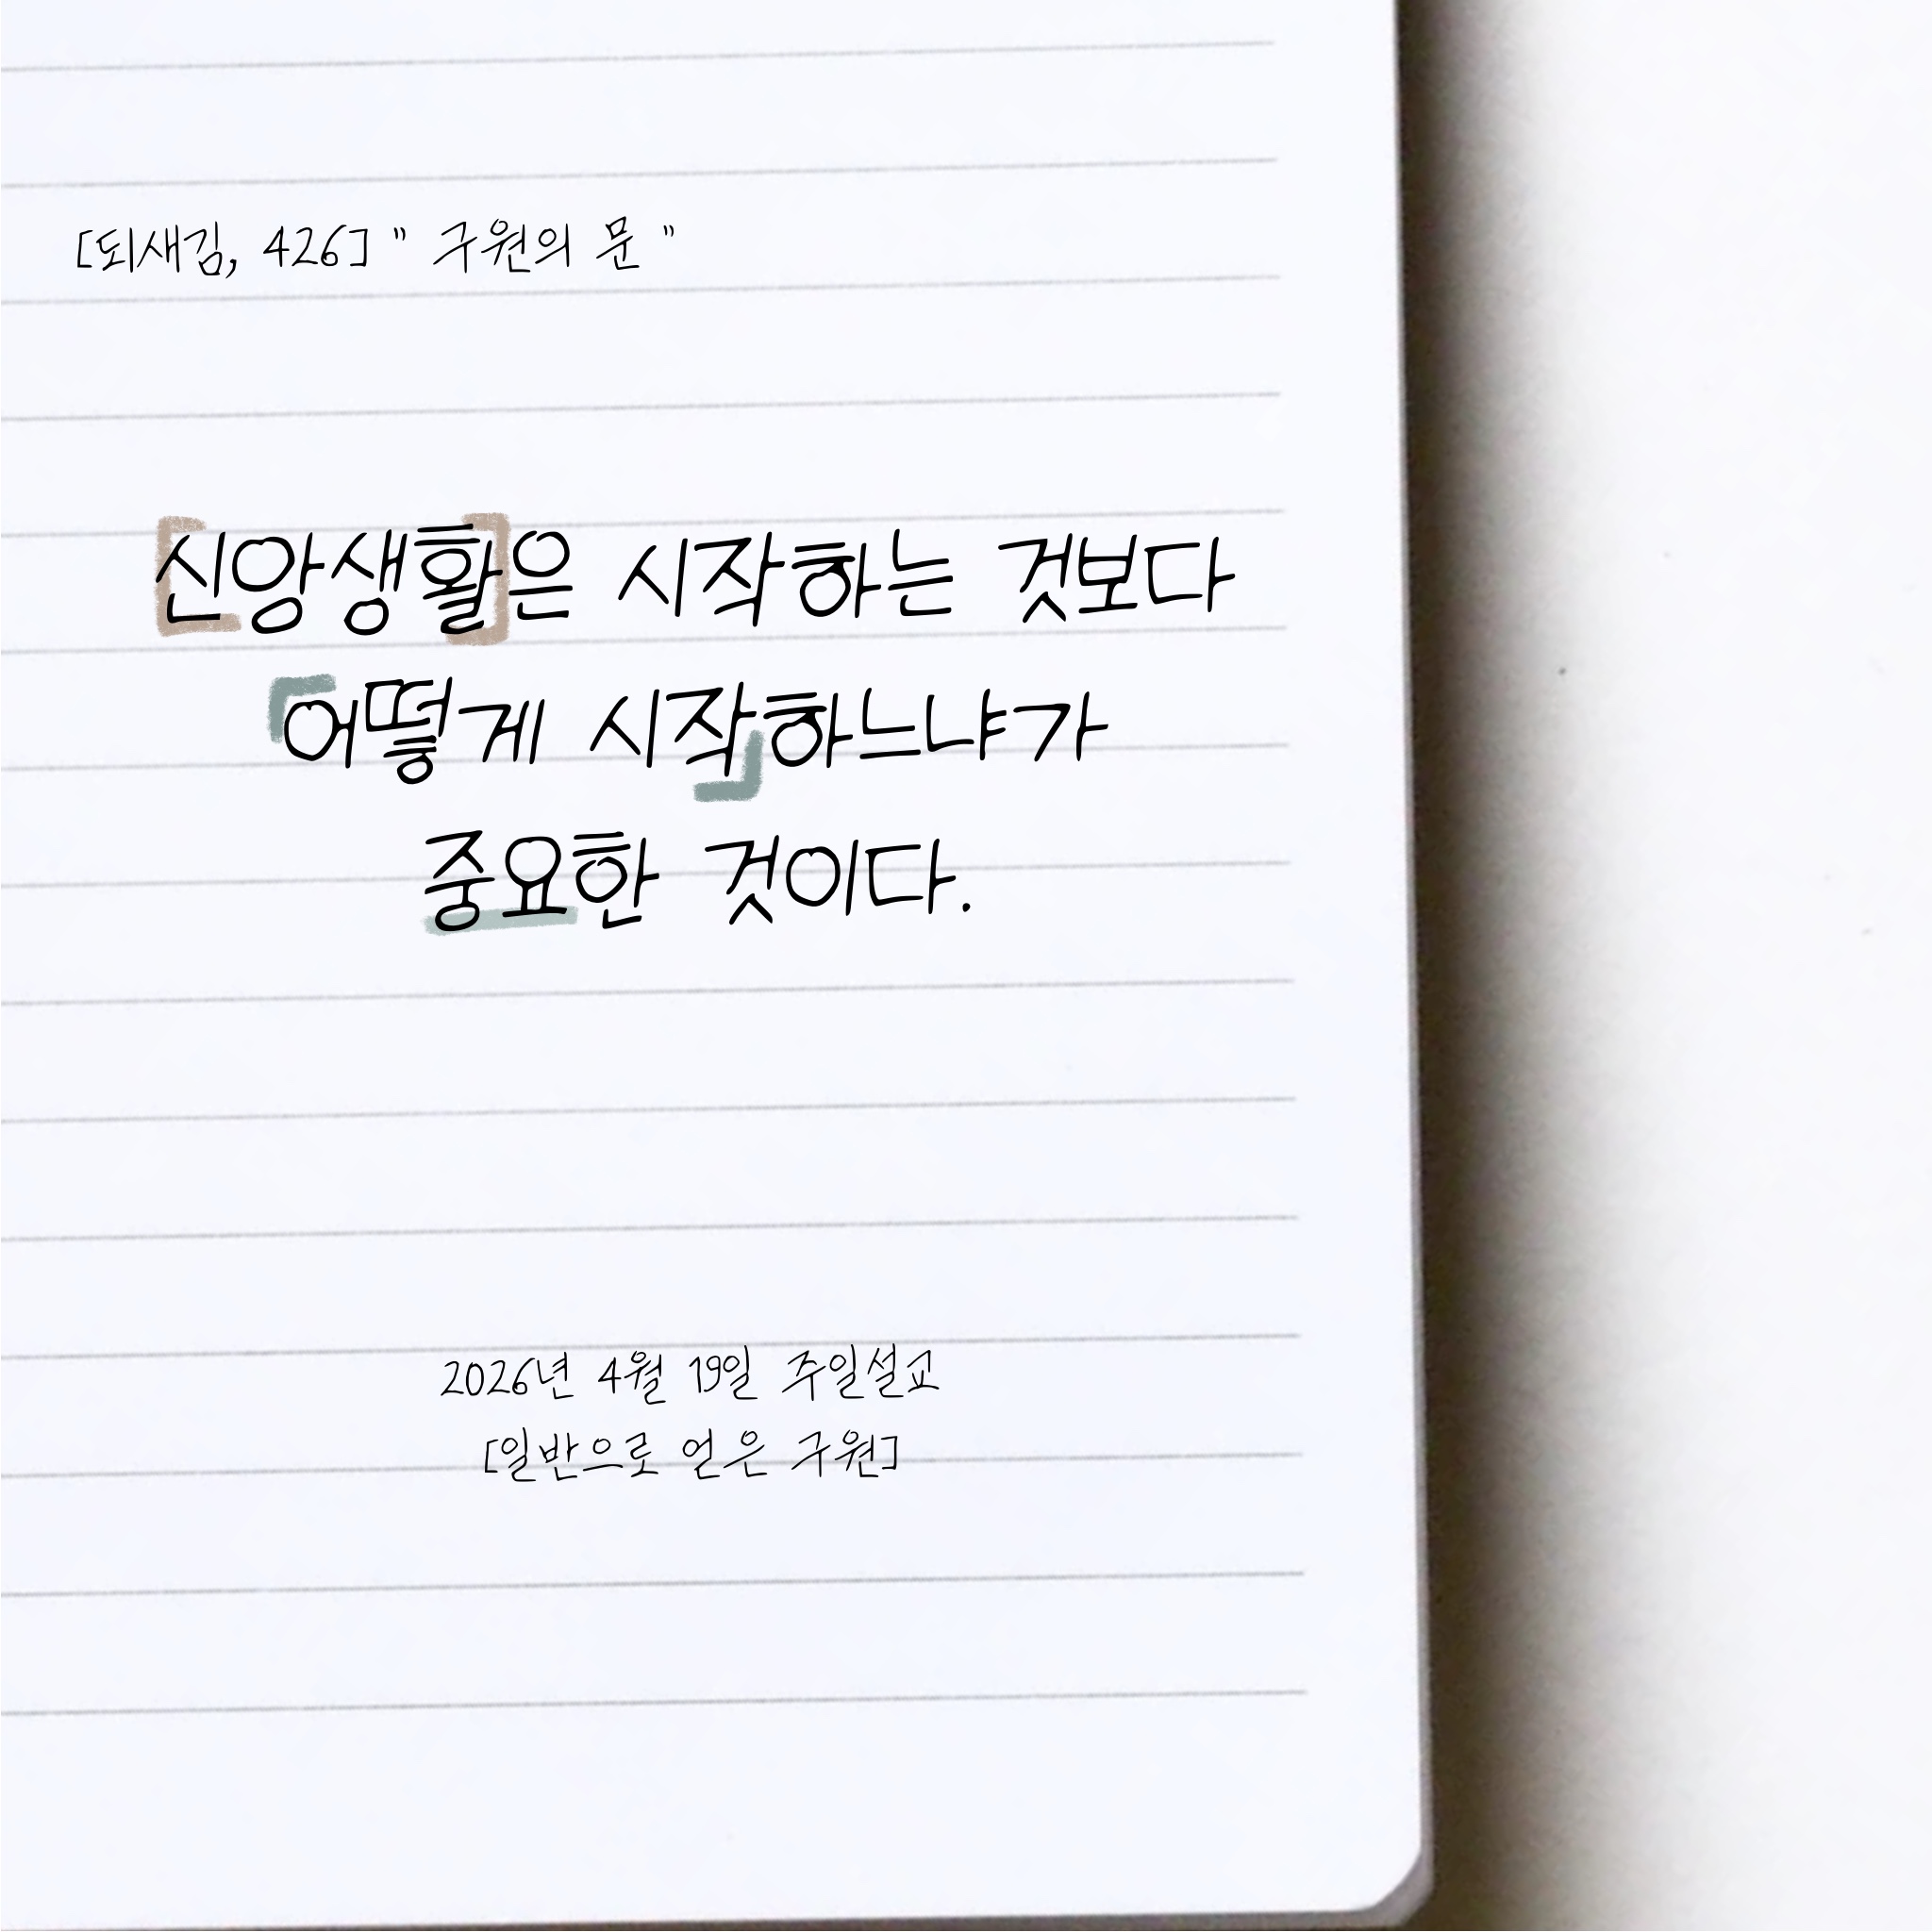 [되새김, 426] " 구원의 문 "
신앙생활은 시작하는 것보다
어떻게 시작하느냐가
중요한 것이다.
2026년 4월 19일 주일설교
[일반으로 얻은 구원]